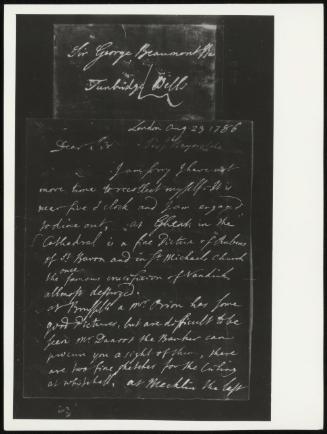 Sir George Beaumont
Tunbridge Wells
London Aug 23 1786
Dear Sir
I am sorry I have not
more time to recollect myself. It is
near five o clock and I am engaged
to dine out, at Ghent in the
Cathedral is a fine Picture of Rubens
of St Bavon and in St Michaels church
once
the famous crucifixion of Vandick
allmost destroyed.
at Brussels a Mr Orion has some
good Pictures, but are difficult to be
seen Mr Danoot the Banker can
procure you a sight of them, there
are two fine sketches for the Ceiling
at whitehall, at Mechlin the last